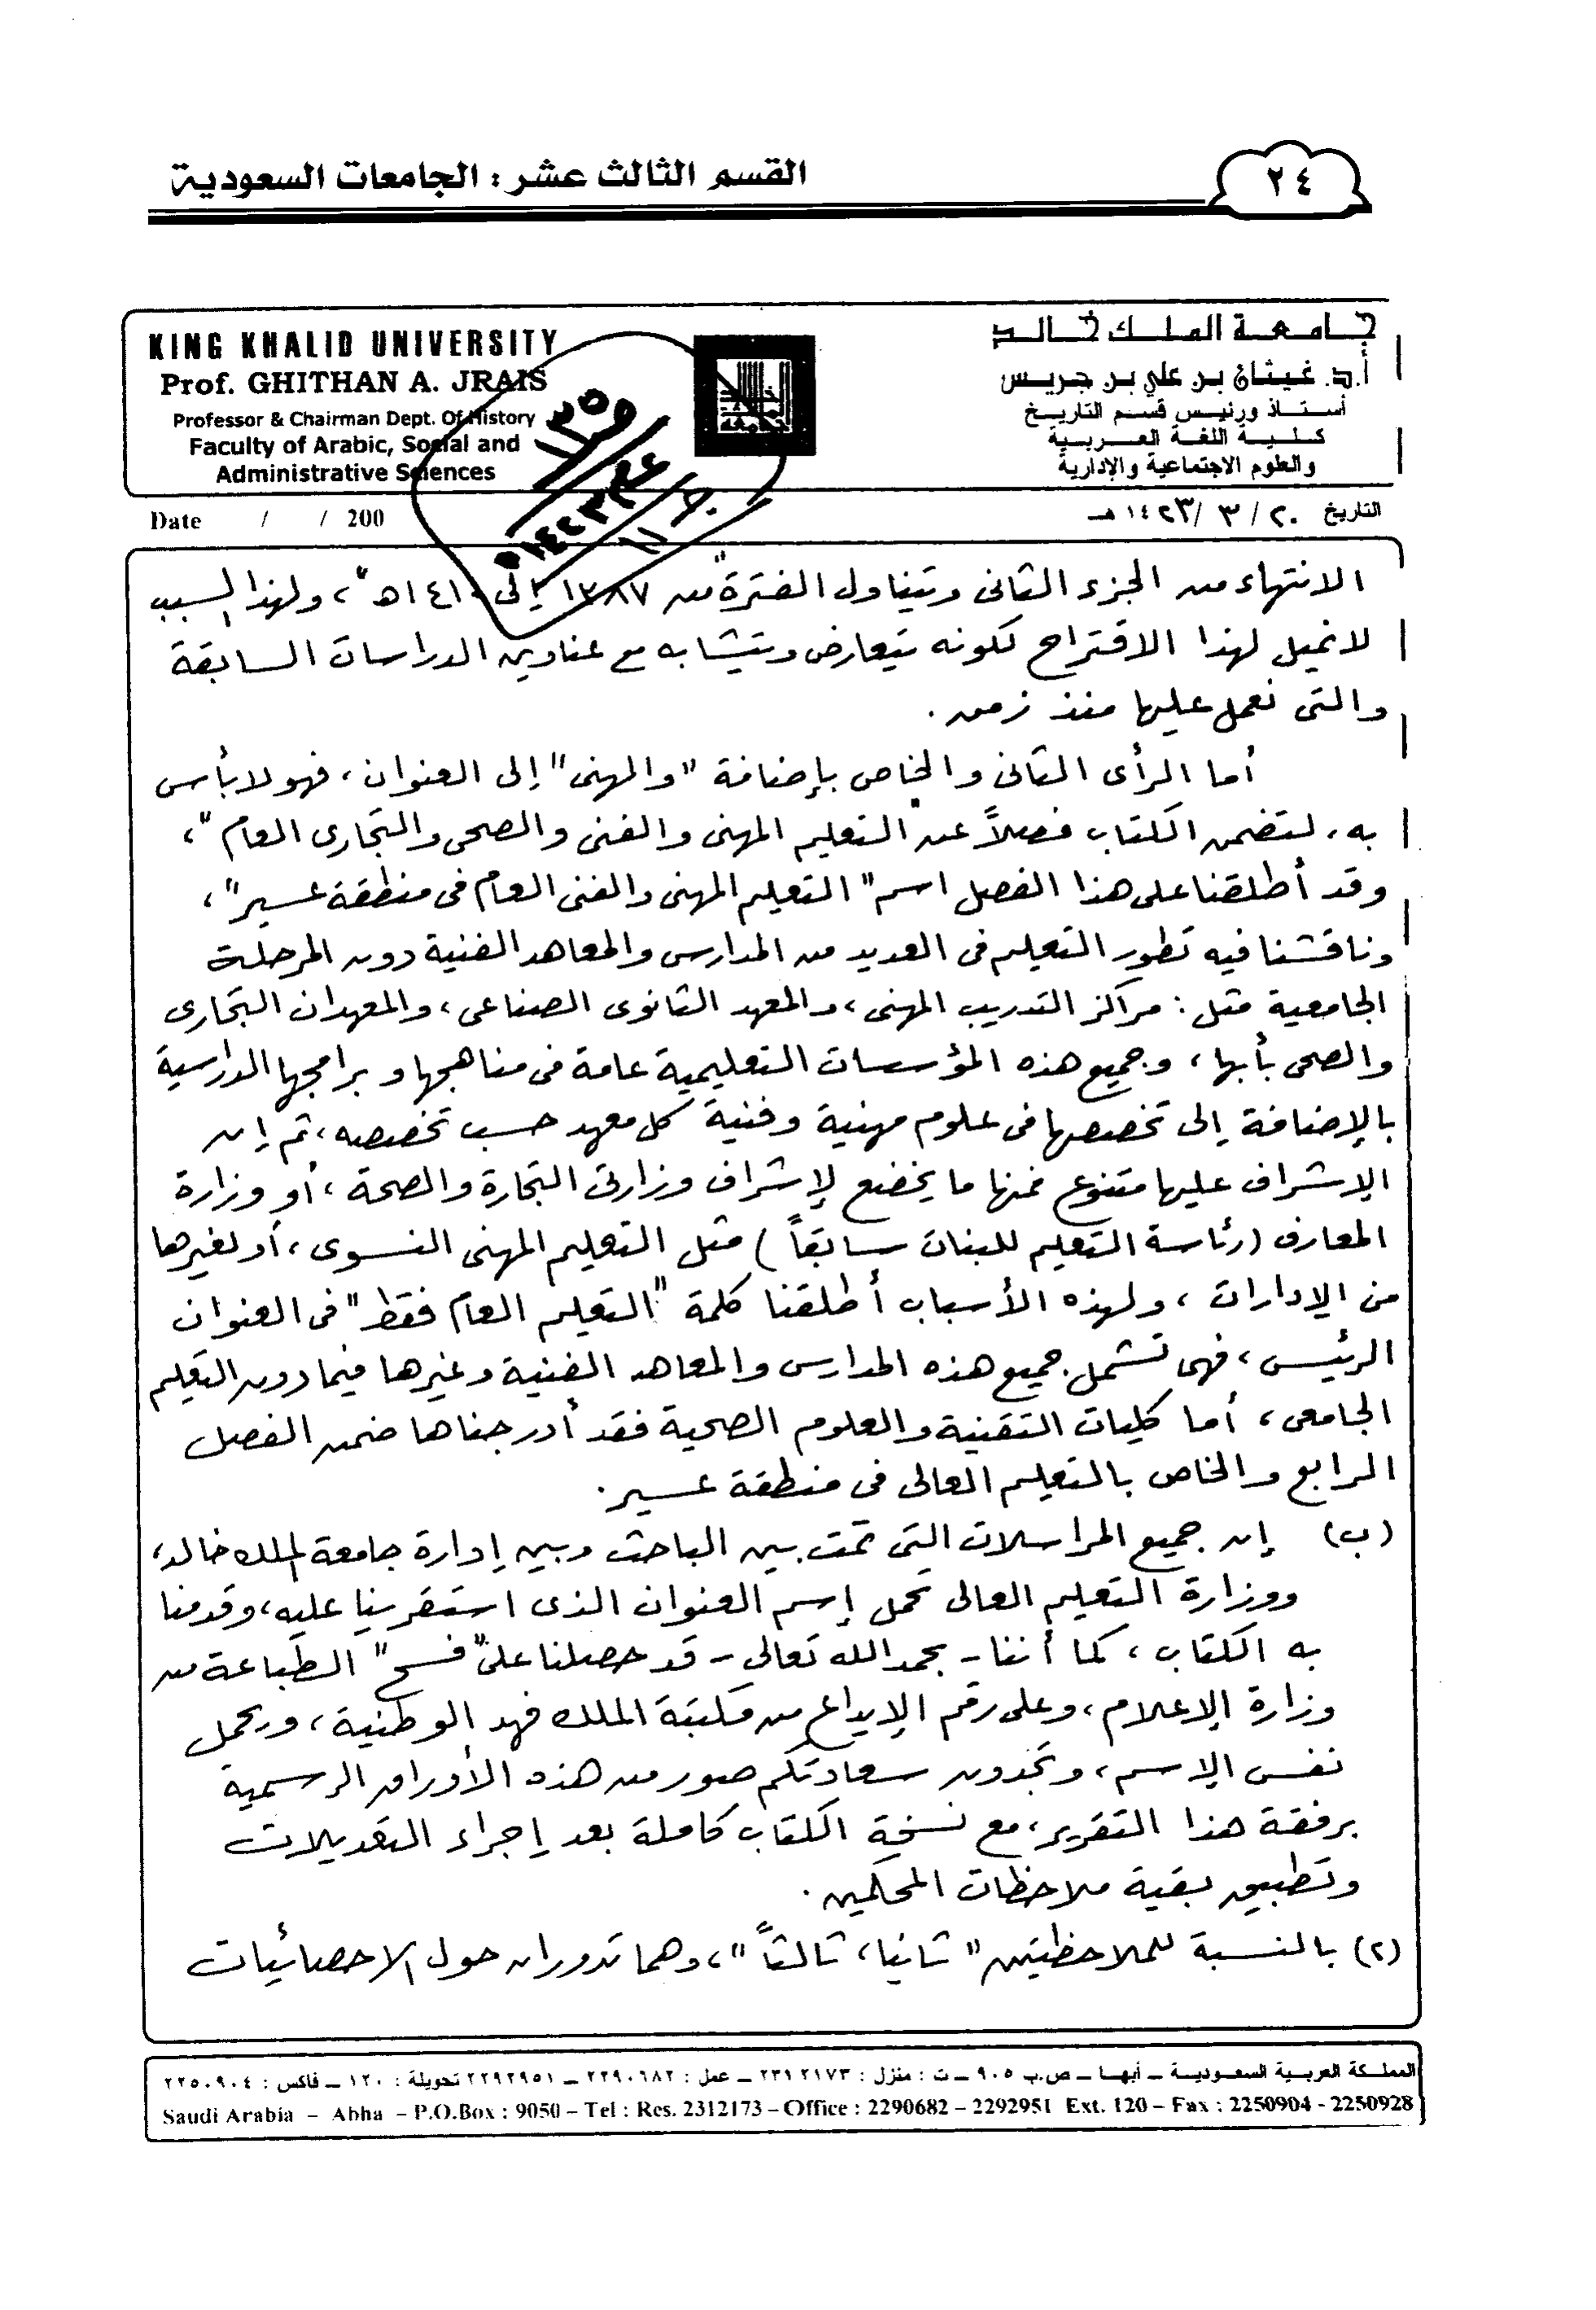 القسم الثالث عشر : الجامعات السعودية
٢٤
KING KHALID UNIVERSITY
Prof. GHITHAN A. JRAIS
Professor & Chairman Dept. Of History
Faculty of Arabic, Social and
Administrative Sciences
جامعة الملك خالد
أ.د. غيثان بن علي بن جريس
أستاذ ورئيس قسم التاريخ
كلية اللغة العربية
والعلوم الاجتماعية والإدارية
Date / / 200
التاريخ ٢٠ / ٣ / ١٤٢٣ هـ
الانتهاء من الجزء الثاني ويتناول الفترة "من ١٣٨٧ إلى ١٤١٠هـ"، ولهذا السبب
لا نميل لهذا الاقتراح لكونه يتعارض ويتشابه مع عناوين الدراسات السابقة
والتي نعمل عليها منذ زمن .
أما الرأي الثاني والخاص بإضافة "والمهني" إلى العنوان، فهو لا بأس
به، لتضمن الكتاب فصلاً عن "التعليم المهني والفني والصحي والتجاري العام"،
وقد أطلقنا على هذا الفصل اسم "التعليم المهني والفني العام في منطقة عسير"،
وناقشنا فيه تطور التعليم في العديد من المدارس والمعاهد الفنية دون المرحلة
الجامعية مثل : مراكز التدريب المهني، والمعهد الثانوي الصناعي، والمعهدان التجاري
والصحي بأبها، وجميع هذه المؤسسات التعليمية عامة في مناهجها وبرامجها الدراسية
بالإضافة إلى تخصصها في علوم مهنية وفنية كل معهد حسب تخصصه، ثم إن
الإشراف عليها متنوع فمنها ما يخضع لإشراف وزارتي التجارة والصحة، أو وزارة
المعارف (رئاسة التعليم للبنات سابقاً) مثل التعليم المهني النسوي، أو لغيرها
من الإدارات، ولهذه الأسباب أطلقنا كلمة "التعليم العام فقط" في العنوان
الرئيس، فهي تشمل جميع هذه المدارس والمعاهد الفنية وغيرها فيما دون التعليم
الجامعي، أما كليات التقنية والعلوم الصحية فقد أدرجناها ضمن الفصل
الرابع والخاص بالتعليم العالي في منطقة عسير .
(ب) إن جميع المراسلات التي تمت بين الباحث وبين إدارة جامعة الملك خالد،
ووزارة التعليم العالي تحمل إسم العنوان الذي استقرينا عليه، وقدمنا
به الكتاب، كما أننا - بحمد الله تعالى - قد حصلنا على "فسح" الطباعة من
وزارة الإعلام، وعلى رقم الإيداع من مكتبة الملك فهد الوطنية، ويحمل
نفس الإسم، وتجدون سعادتكم صور من هذه الأوراق الرسمية
برفقة هذا التقرير، مع نسخة الكتاب كاملة بعد إجراء التعديلات
وتطبيق بقية ملاحظات المحكمين .
(٢) بالنسبة للملاحظتين "ثانيا، ثالثاً"، وهما تدوران حول الاحصائيات
المملكة العربية السعودية ــ أبهــا ــ ص.ب ٩٠٥ ــ ت : منزل : ٢٣١٢١٧٣ ــ عمل : ٢٢٩٠٦٨٢ ــ ٢٢٩٢٩٥١ تحويلة : ١٢٠ ــ فاكس : ٢٢٥٠٩٠٤
Saudi Arabia – Abha – P.O.Box : 9050 – Tel : Res. 2312173 – Office : 2290682 – 2292951 Ext. 120 – Fax : 2250904 - 2250928